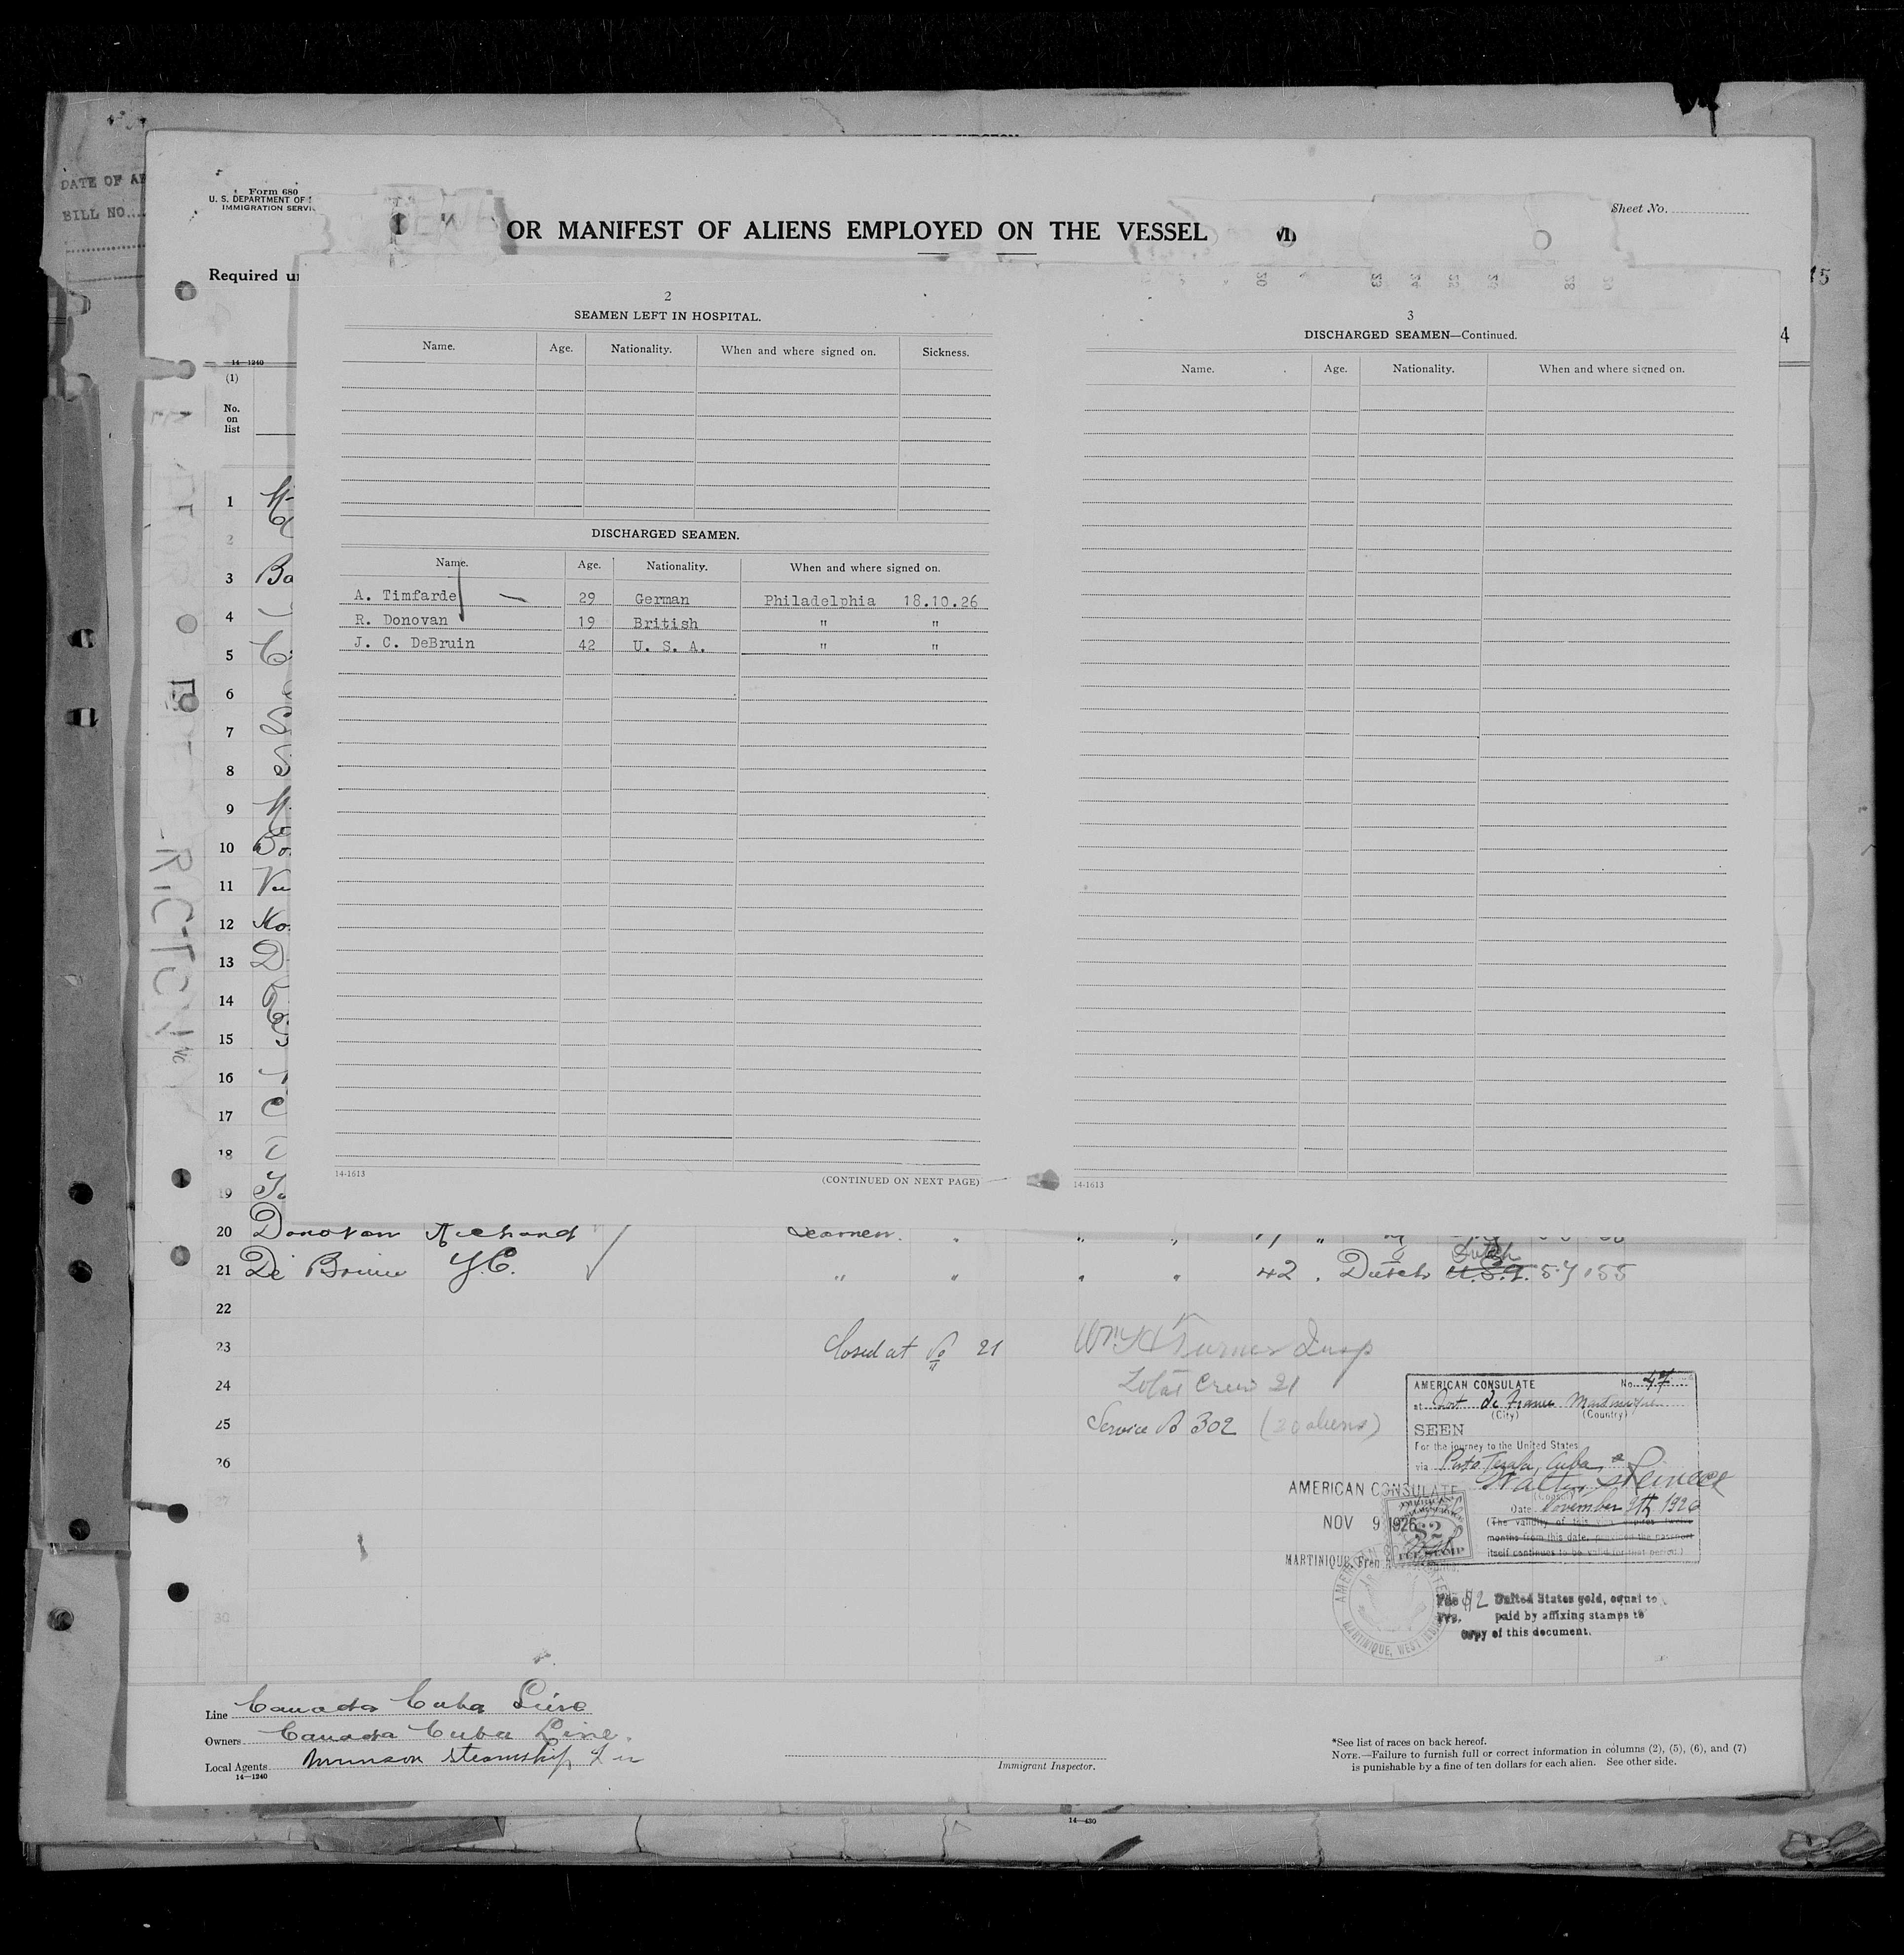 DATE OF
BILL NO.
Form 680
U. S. DEPARTMENT OF
IMMIGRATION SERVI
Sheet No.
OR MANIFEST OF ALIENS EMPLOYED ON THE VESSEL
Required
14—1240
(1)
No.
on
list
2
SEAMEN LEFT IN HOSPITAL.
Name. Age. Nationality. When and where signed on. Sickness.
DISCHARGED SEAMEN.
Name. Age. Nationality. When and where signed on.
A. Timfarde 29 German Philadelphia 18.10.26
R. Donovan 19 British " "
J. C. DeBruin 42 U. S. A. " "
14-1613
(CONTINUED ON NEXT PAGE)
3
DISCHARGED SEAMEN—Continued.
Name. Age. Nationality. When and where signed on.
14-1613
1
2
3 Ba
4
5
6
7
8
9
10
11
12
13
14
15
16
17
18
19
20 Donovan Richard Seamen. " "
21 De Bruin J.C. " " " " 42 Dutch Dutch U.S.A. 5 7 155
22
23 Closed at No 21 Wm H Turner Insp
24 Total Crew 21
25 Service No 302 (20 aliens)
26
27
30
AMERICAN CONSULATE No. 47
at Fort de France Martinique
(City) (Country)
SEEN
For the journey to the United States
via Porto Tarafa, Cuba
Walter
(Consul)
Date November 9th 1926
(The validity of this visa expires twelve
months from this date, provided the passport
itself continues to be valid for that period.)
AMERICAN CONSULATE
NOV 9 1926
MARTINIQUE, Fren
$2
FEE STAMP
MARTINIQUE, WEST INDIES
Fee $2 United States gold, equal to
Frs. paid by affixing stamps to
copy of this document.
Line Canada Cuba Line
Owners Canada Cuba Line.
Local Agents Munson Steamship Line
14—1240
Immigrant Inspector.
*See list of races on back hereof.
NOTE.—Failure to furnish full or correct information in columns (2), (5), (6), and (7)
is punishable by a fine of ten dollars for each alien. See other side.
14—430